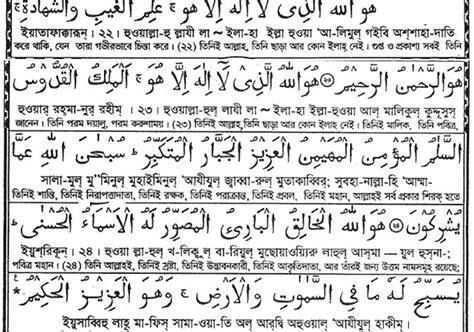 هُوَ اللّٰهُ الَّذِىْ لَاۤ اِلٰهَ اِلَّا هُوَ ۚ عٰلِمُ الْغَيْبِ وَالشَّهَادَةِ ۚ
ইয়াতাফাক্কারূন্। ২২। হুওয়াল্লা-হু ল্লাযী লা ~ ইলা-হা ইল্লা হুওয়া 'আ-লিমুল্ গইবি অশ্শাহা-দাতি
করে থাকি, যেন তারা গভীরভাবে চিন্তা করে। (২২) তিনিই আল্লাহ, তিনি ছাড়া আর কোন ইলাহ্ নেই। গুপ্ত ও প্রকাশ্য সবই তিনি
هُوَ الرَّحْمٰنُ الرَّحِيْمُ ﴿২২﴾ هُوَ اللّٰهُ الَّذِىْ لَاۤ اِلٰهَ اِلَّا هُوَ ۚ اَلْمَلِكُ الْقُدُّوْسُ
হুওয়ার্ রহমা-নুর্ রহীম্। ২৩। হুওয়াল্লা-হুল্ লাযী লা ~ ইলা-হা ইল্লা-হুওয়া আল্ মালিকুল্ কুদ্দূসুস্
জানেন। তিনি পরম দয়ালু, পরম করুণাময়। (২৩) তিনিই আল্লাহ, তিনি ছাড়া আর কোন ইলাহ নেই। তিনিই মালিক, তিনি পবিত্র,
السَّلٰمُ الْمُؤْمِنُ الْمُهَيْمِنُ الْعَزِيْزُ الْجَبَّارُ الْمُتَكَبِّرُ ؕ سُبْحٰنَ اللّٰهِ عَمَّا
সালা-মুল্ মু'মিনুল্ মুহাইমিনুল্ 'আযীযুল্ জ্বাব্বা-রুল্ মুতাকাব্বির্; সুবহা-নাল্লা-হি 'আম্মা-
তিনিই শান্তি, তিনিই নিরাপত্তাদাতা, তিনিই রক্ষক, তিনিই পরাক্রান্ত, তিনিই প্রবল, তিনিই মহান, আল্লাহই সর্ব প্রকার শিরক্ হতে
يُشْرِكُوْنَ ﴿২৩﴾ هُوَ اللّٰهُ الْخَالِقُ الْبَارِئُ الْمُصَوِّرُ لَهُ الْاَسْمَآءُ الْحُسْنٰى ؕ
ইয়ুশ্রিকূন্। ২৪। হুওয়া ল্লা-হুল্ খ-লিকুল্ বা-রিয়ুল্ মুছোয়াওয়্যিরু লাহুল্ আস্মা — য়ুল্ হুস্না-;
পবিত্র মহান। (২৪) তিনিই আল্লাহই, তিনিই স্রষ্টা, তিনিই উদ্ভাবনকারী, তিনিই আকৃতিদাতা, আর তাঁরই জন্য উত্তম নামসমূহ রয়েছে;
يُسَبِّحُ لَهٗ مَا فِى السَّمٰوٰتِ وَالْاَرْضِ ۚ وَهُوَ الْعَزِيْزُ الْحَكِيْمُ
ইয়ুসাব্বিহু লাহূ মা-ফিস্ সামা-ওয়া-তি অল্ আরদ্বি অহুওয়াল্ 'আযীযুল্ হাকীম্।